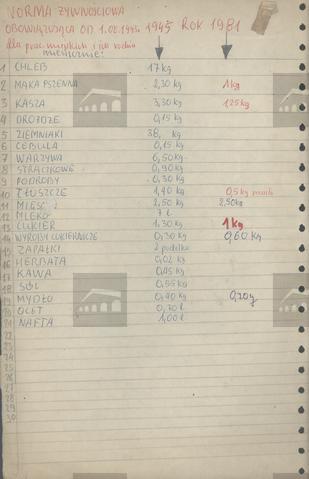 NORMA ŻYWNOŚCIOWA
OBOWIĄZUJĄCA OD 1.02.1945r. 1945 ROK 1981
dla prac. miejskich i ich rodzin
miesięcznie:
1 CHLEB 17 kg
2 MĄKA PSZENNA 2,30 kg 1 kg
3 KASZA 3,30 kg 1,25 kg
4 DROŻDŻE 0,15 kg
5 ZIEMNIAKI 38, kg
6 CEBULA 0,15 kg
7 WARZYWA 6,50 kg
8 STRĄCZKOWE 0,90 kg
9 PODROBY 0,30 kg
10 TŁUSZCZE 1,40 kg 0,5 kg
11 MIĘSO 2,50 kg 2,50 kg
12 MLEKO 7 l
13 CUKIER 1,30 kg 1 kg
14 WYROBY CUKIERNICZE 0,30 kg 0,60 kg
15 ZAPAŁKI 2 pudełka
16 HERBATA 0,02 kg
17 KAWA 0,45 kg
18 SÓL 0,55 kg
19 MYDŁO 0,40 kg 0,20 g
20 OCET 0,20 l
21 NAFTA 1,00 l
22
23
24
25
26
27
28
29
30